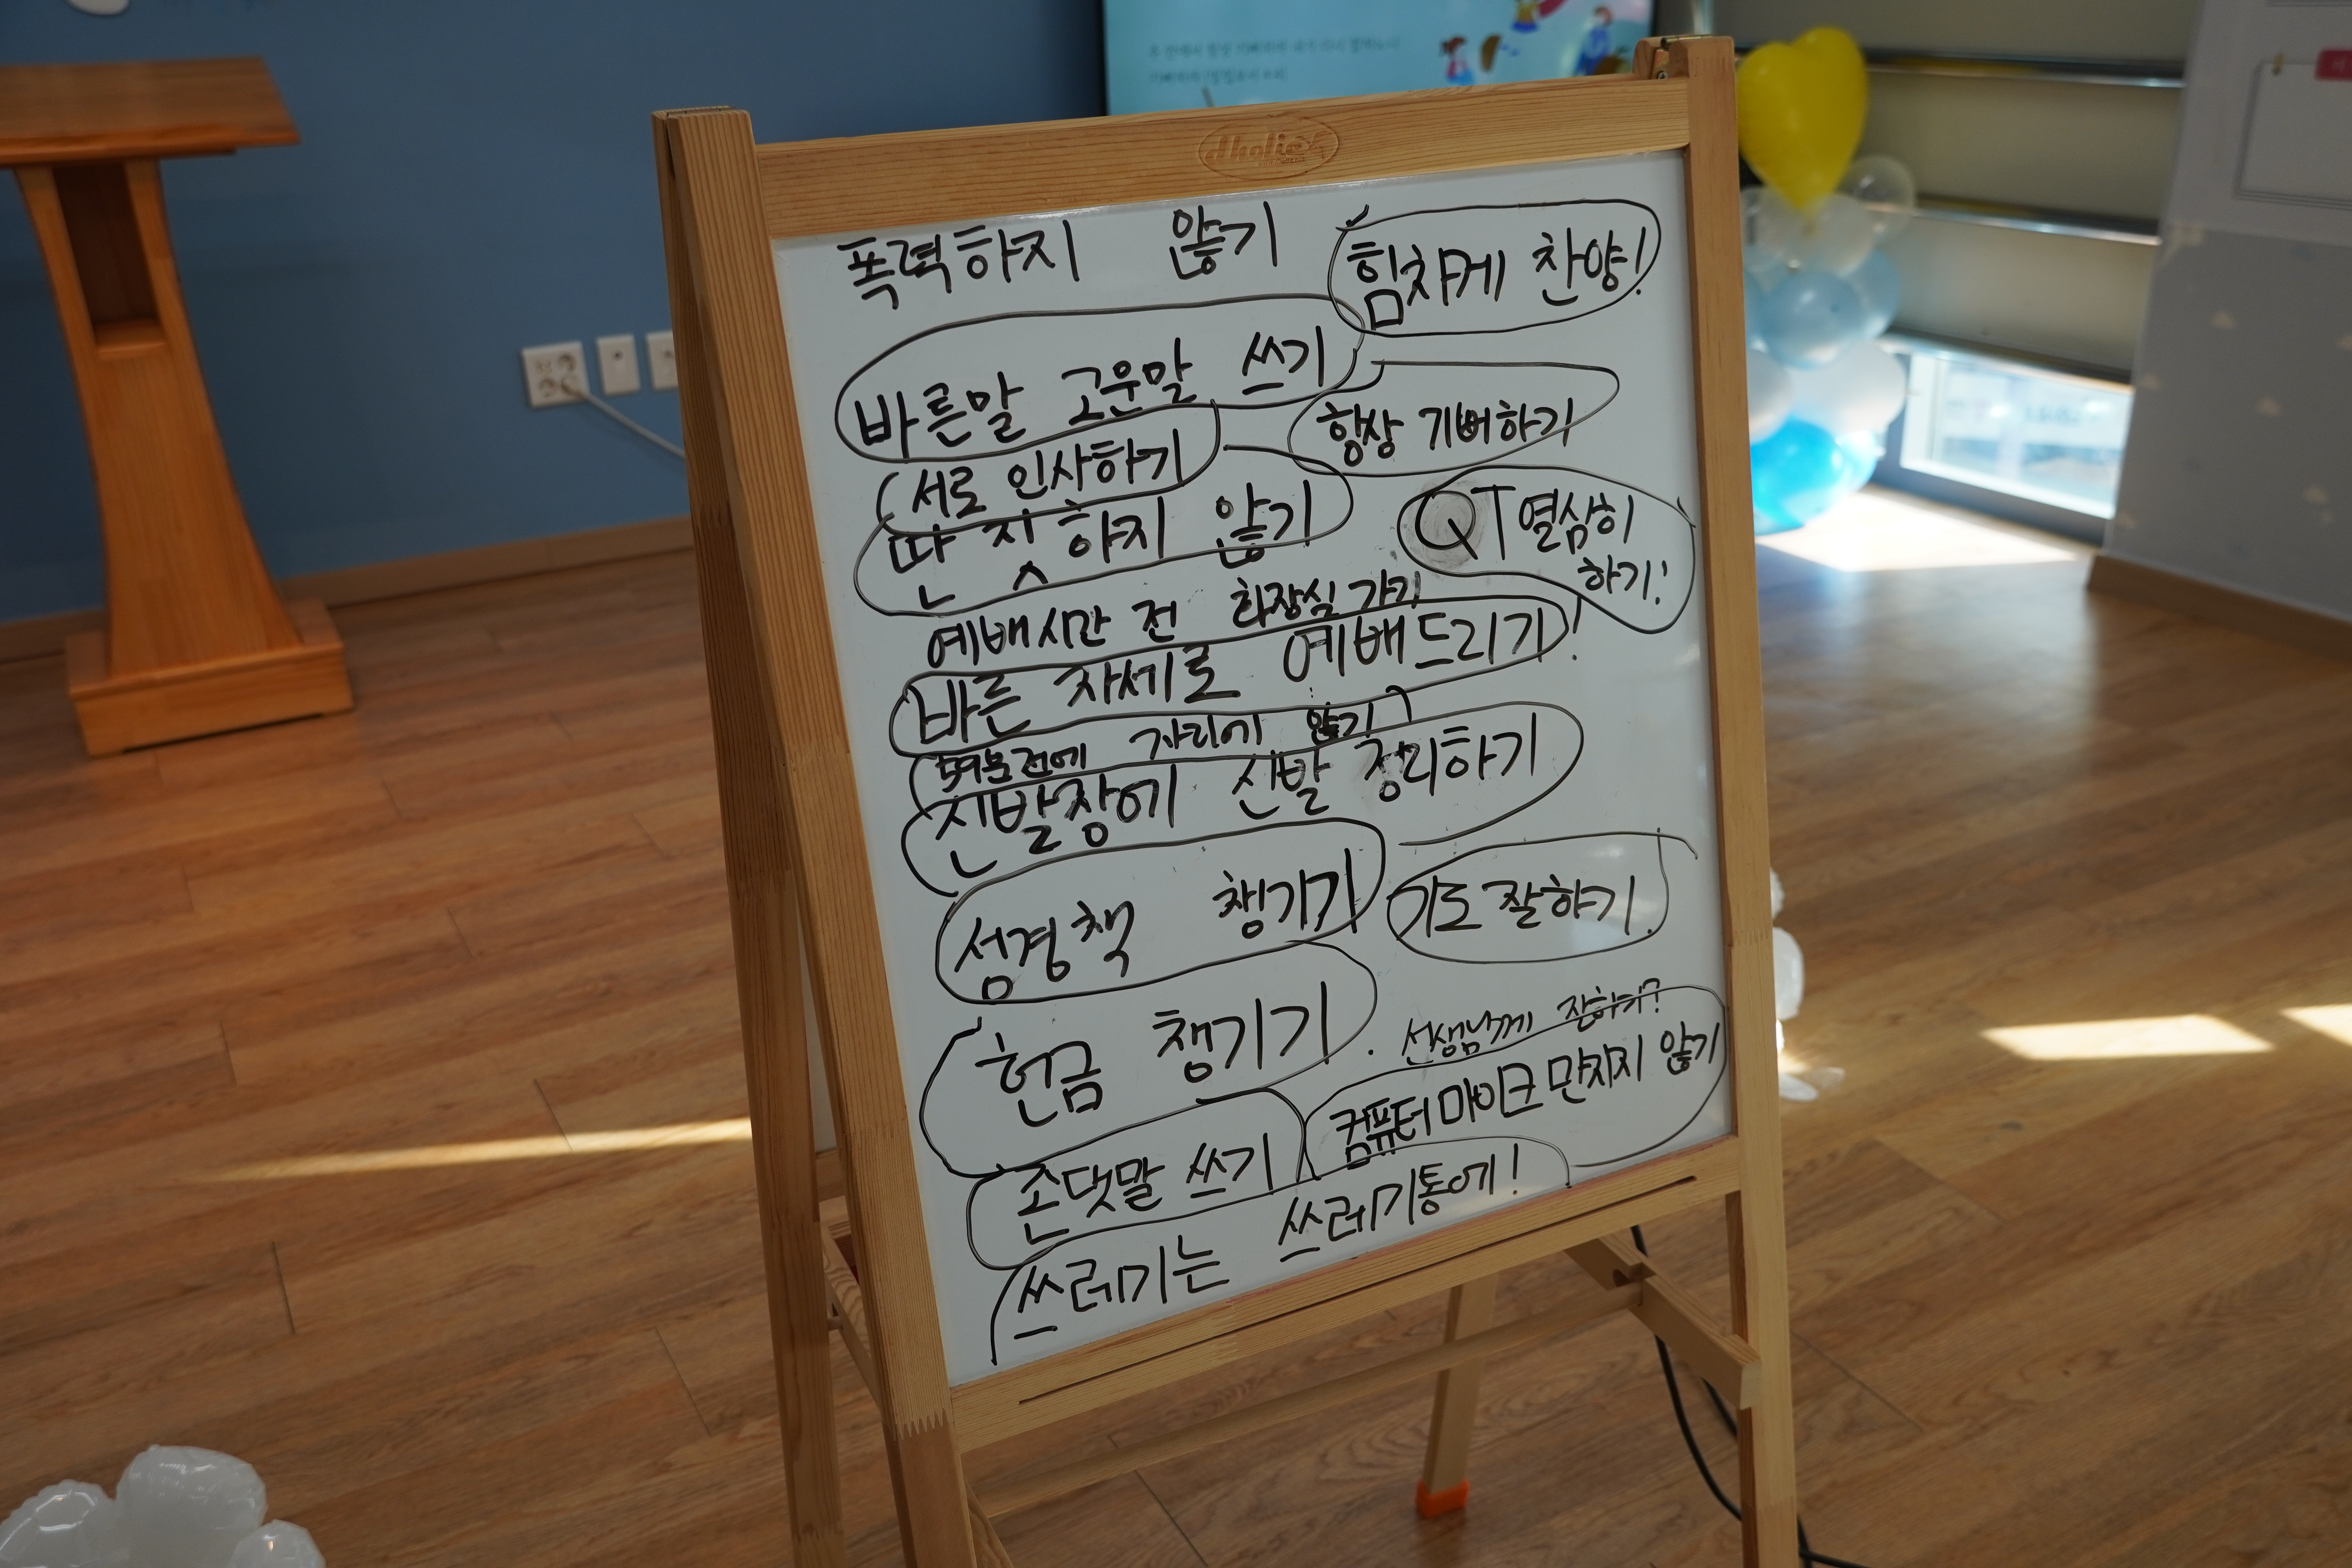 폭력하지 않기
힘차게 찬양!
바른말 고운말 쓰기
항상 기뻐하기
서로 인사하기
딴 짓 하지 않기
QT 열심히
하기!
예배시간 전 화장실 가기
바른 자세로 예배드리기!
자리에 앉기
신발장에 신발 정리하기
성경책 챙기기
기도 잘하기.
헌금 챙기기
선생님께 잘하기?
컴퓨터 마이크 만지지 않기
존댓말 쓰기
쓰레기는 쓰레기통에!